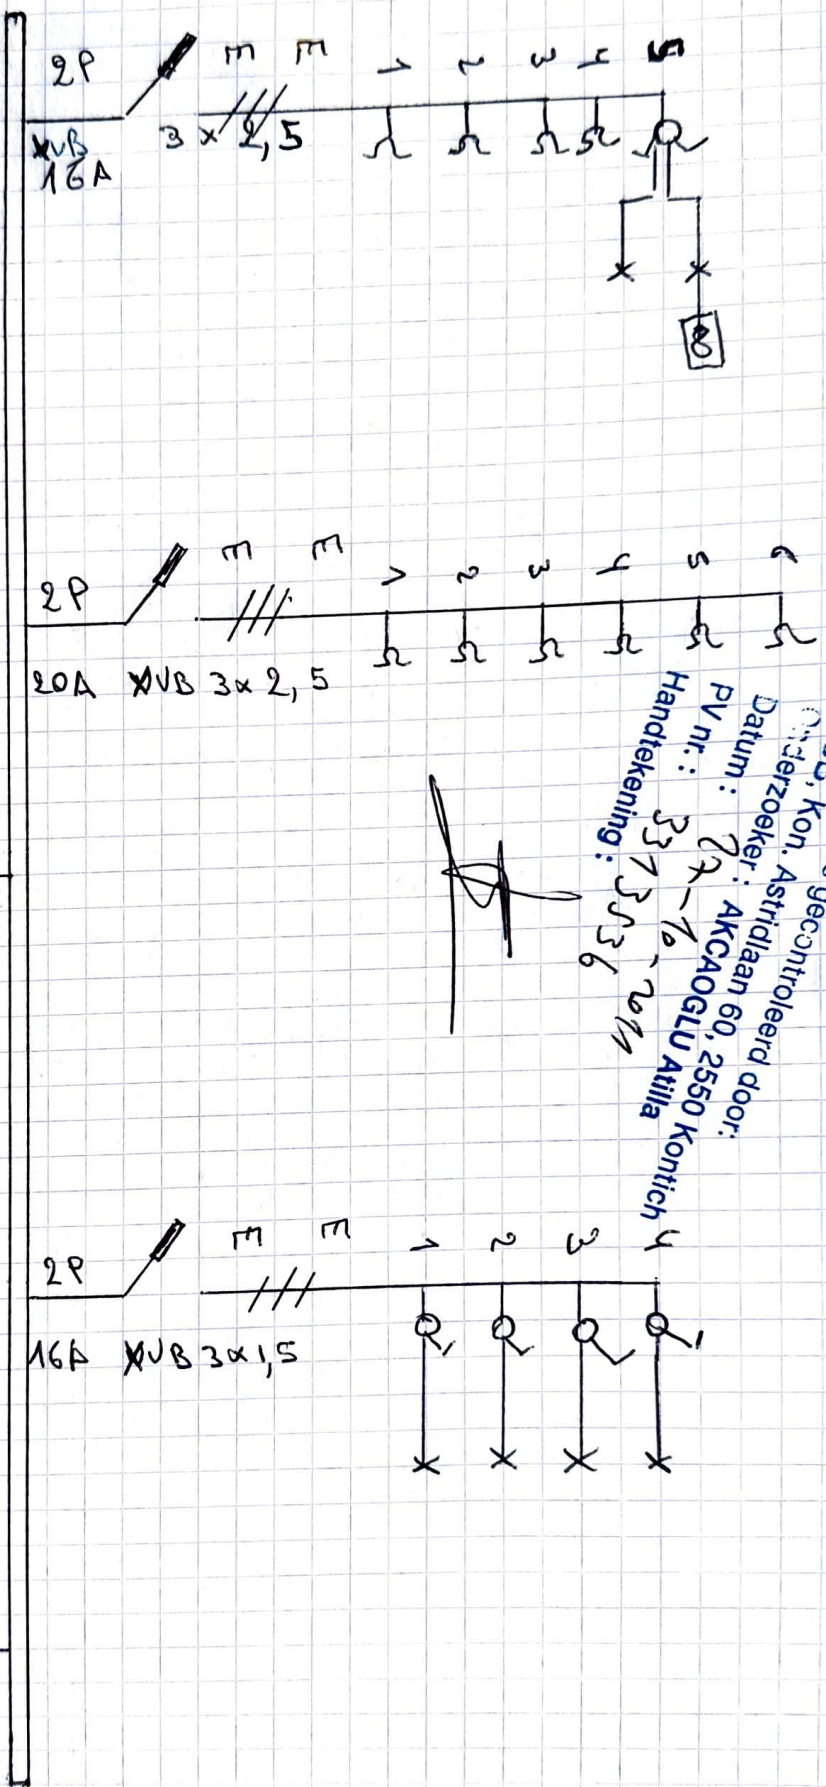 2P m m 1 2 3 4 5
XVB 3 x 2,5
16A
8
2P m m 1 2 3 4 5 6
20A XVB 3x2,5
gecontroleerd door:
Kon. Astridlaan 60, 2550 Kontich
Onderzoeker: AKCAOGLU Atilla
Datum: 27-10-2011
PV nr.: 3313536
Handtekening:
2P m m 1 2 3 4
16A XVB 3x1,5